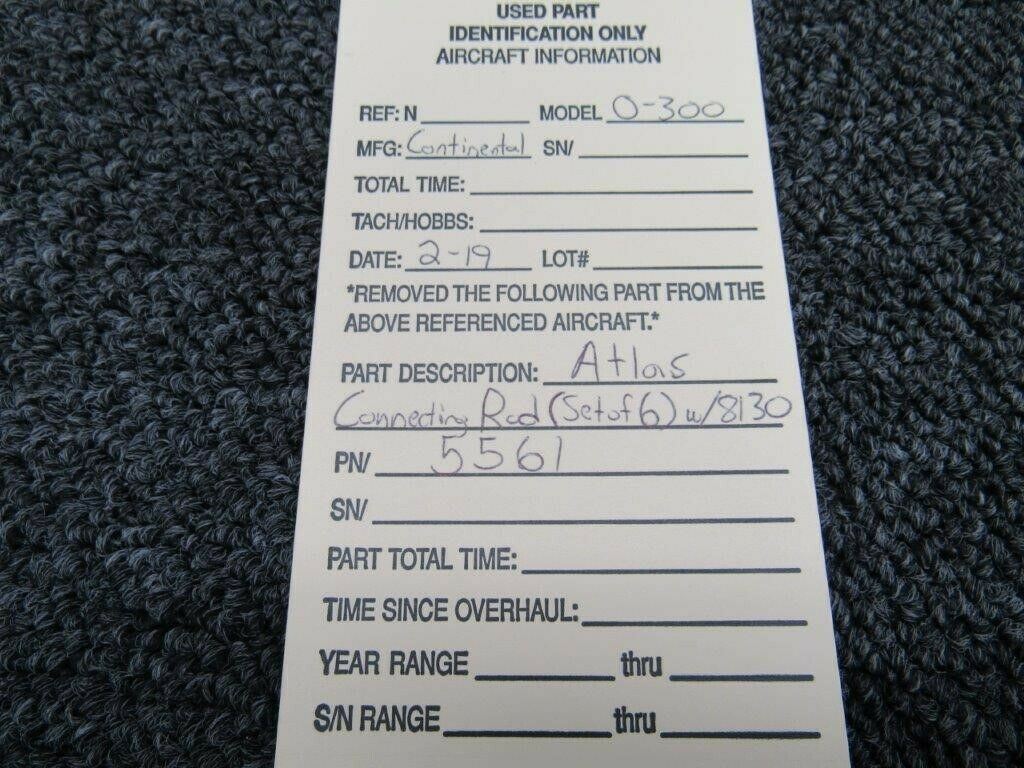 USED PART
IDENTIFICATION ONLY
AIRCRAFT INFORMATION
REF: N MODEL O-300
MFG: Continental SN/
TOTAL TIME:
TACH/HOBBS:
DATE: 2-19 LOT#
*REMOVED THE FOLLOWING PART FROM THE
ABOVE REFERENCED AIRCRAFT.*
PART DESCRIPTION: Atlas
Connecting Rod (Set of 6) w/8130
PN/ 5561
SN/
PART TOTAL TIME:
TIME SINCE OVERHAUL:
YEAR RANGE thru
S/N RANGE thru